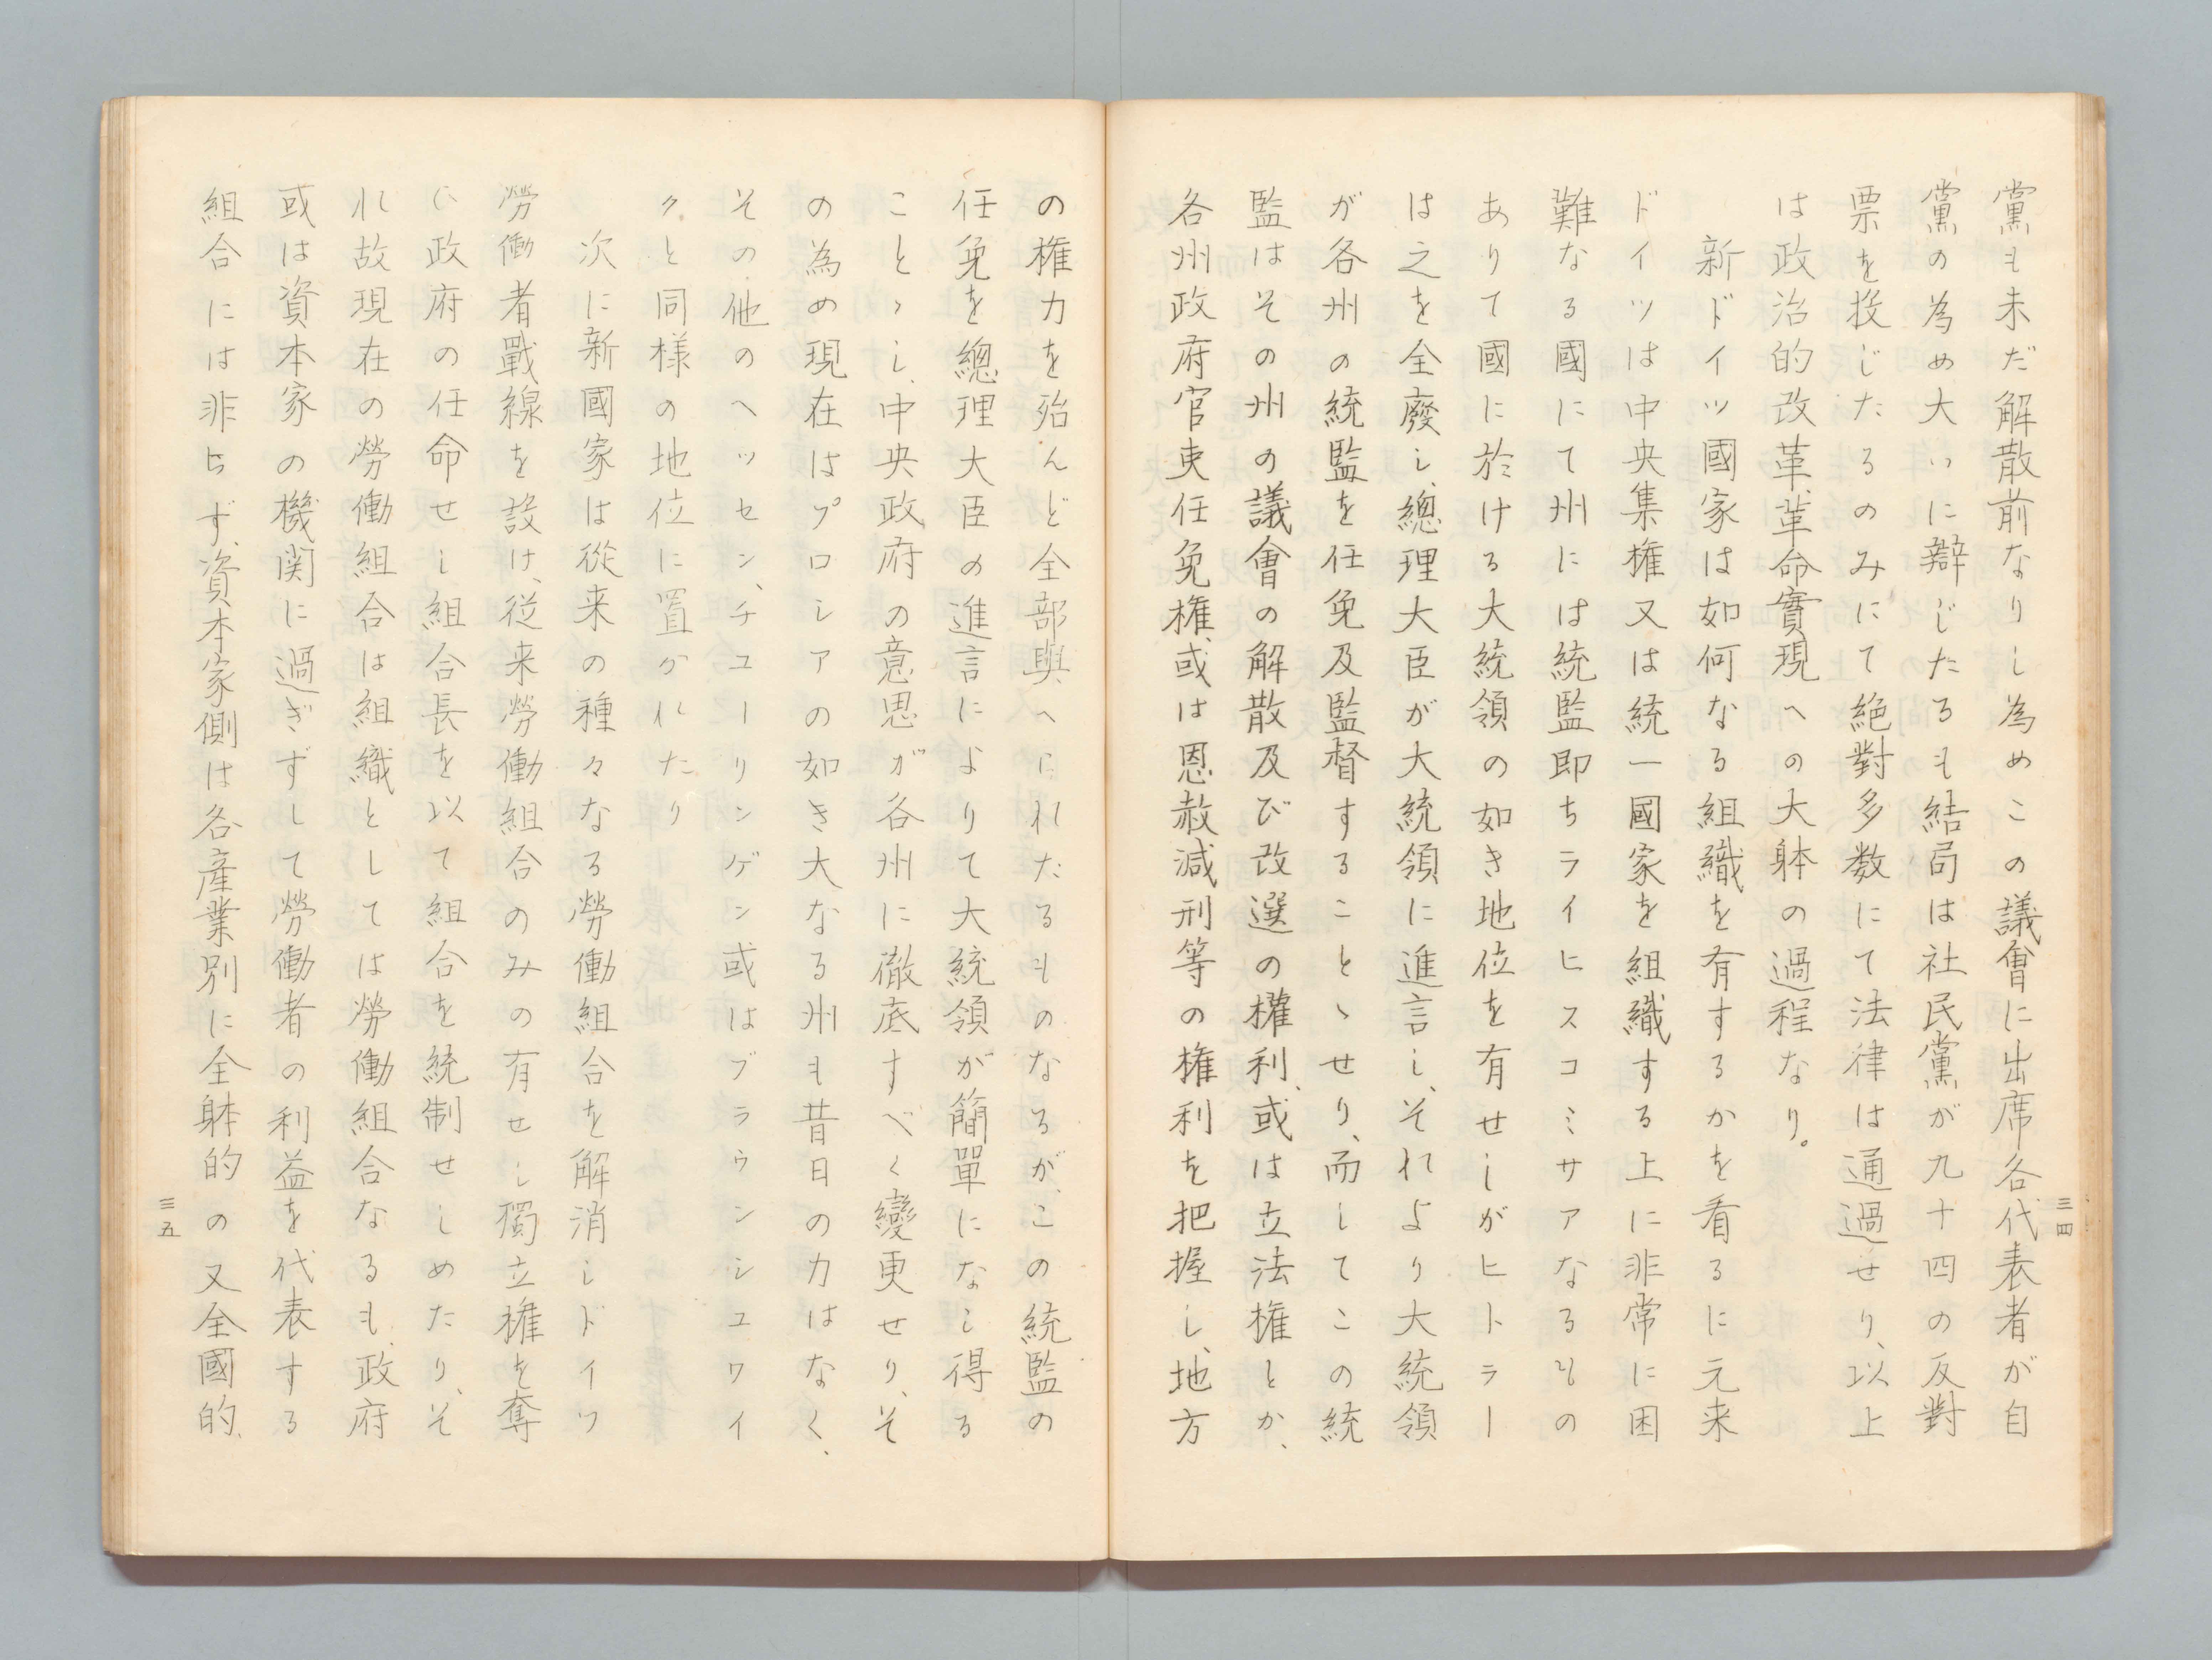 黨も未だ解散前なりし為めこの議會に出席各代表者が自
黨の為め大いに辯じたるも結局は社民黨が九十四の反對
票を投じたるのみにて絶對多数にて法律は通過せり、以上
は政治的改革、革命實現への大躰の過程なり。
新ドイツ國家は如何なる組織を有するかを看るに元来
ドイツは中央集権又は統一國家を組織する上に非常に困
難なる國にて州には統監即ちライヒスコミサアなるもの
ありて國に於ける大統領の如き地位を有せしがヒトラー
は之を全廢し、總理大臣が大統領に進言し、それより大統領
が各州の統監を任免及監督することゝせり、而してこの統
監はその州の議會の解散及び改選の權利、或は立法権とか、
各州政府官吏任免権、或は恩赦減刑等の権利を把握し、地方
三四
の権力を殆んど全部與へられたるものなるが、この統監の
任免を總理大臣の進言によりて大統領が簡單になし得る
ことゝし、中央政府の意思が各州に徹底すべく變更せり、そ
の為め現在はプロシアの如き大なる州も昔日の力はなく、
その他のヘッセン、チューリンゲン或はブラウンシュワイ
クと同様の地位に置かれたり
次に新國家は從来の種々なる勞働組合を解消しドイツ
勞働者戰線を設け、従来勞働組合のみの有せし獨立権を奪
ひ政府の任命せし組合長を以て組合を統制せしめたり、そ
れ故現在の勞働組合は組織としては勞働組合なるも、政府
或は資本家の機関に過ぎずして勞働者の利益を代表する
組合には非らず、資本家側は各産業別に全躰的の又全國的、
三五